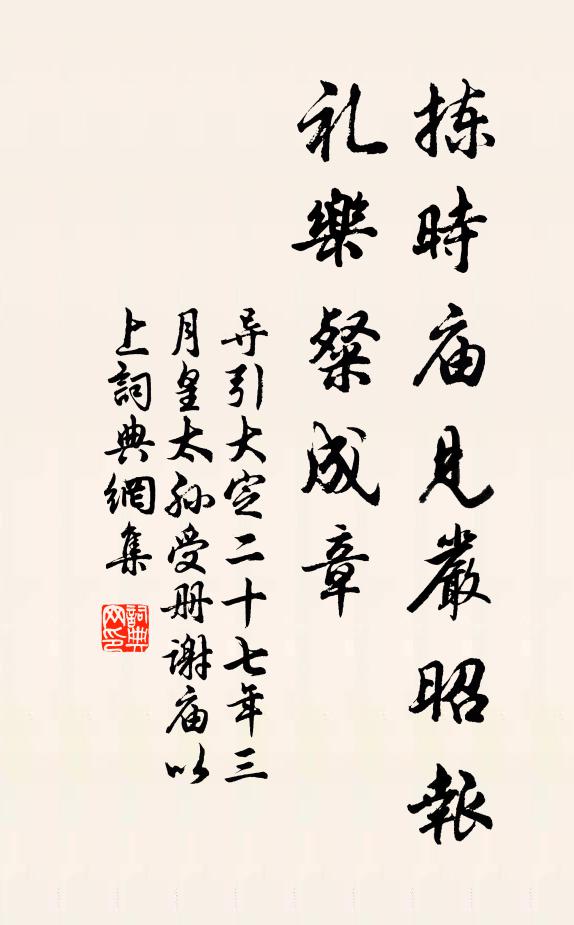 拣時庙見嚴昭報
礼樂粲成章
导引大定二十七年三
月皇太孙受册謝庙以
上詞典網集
詞典
网印